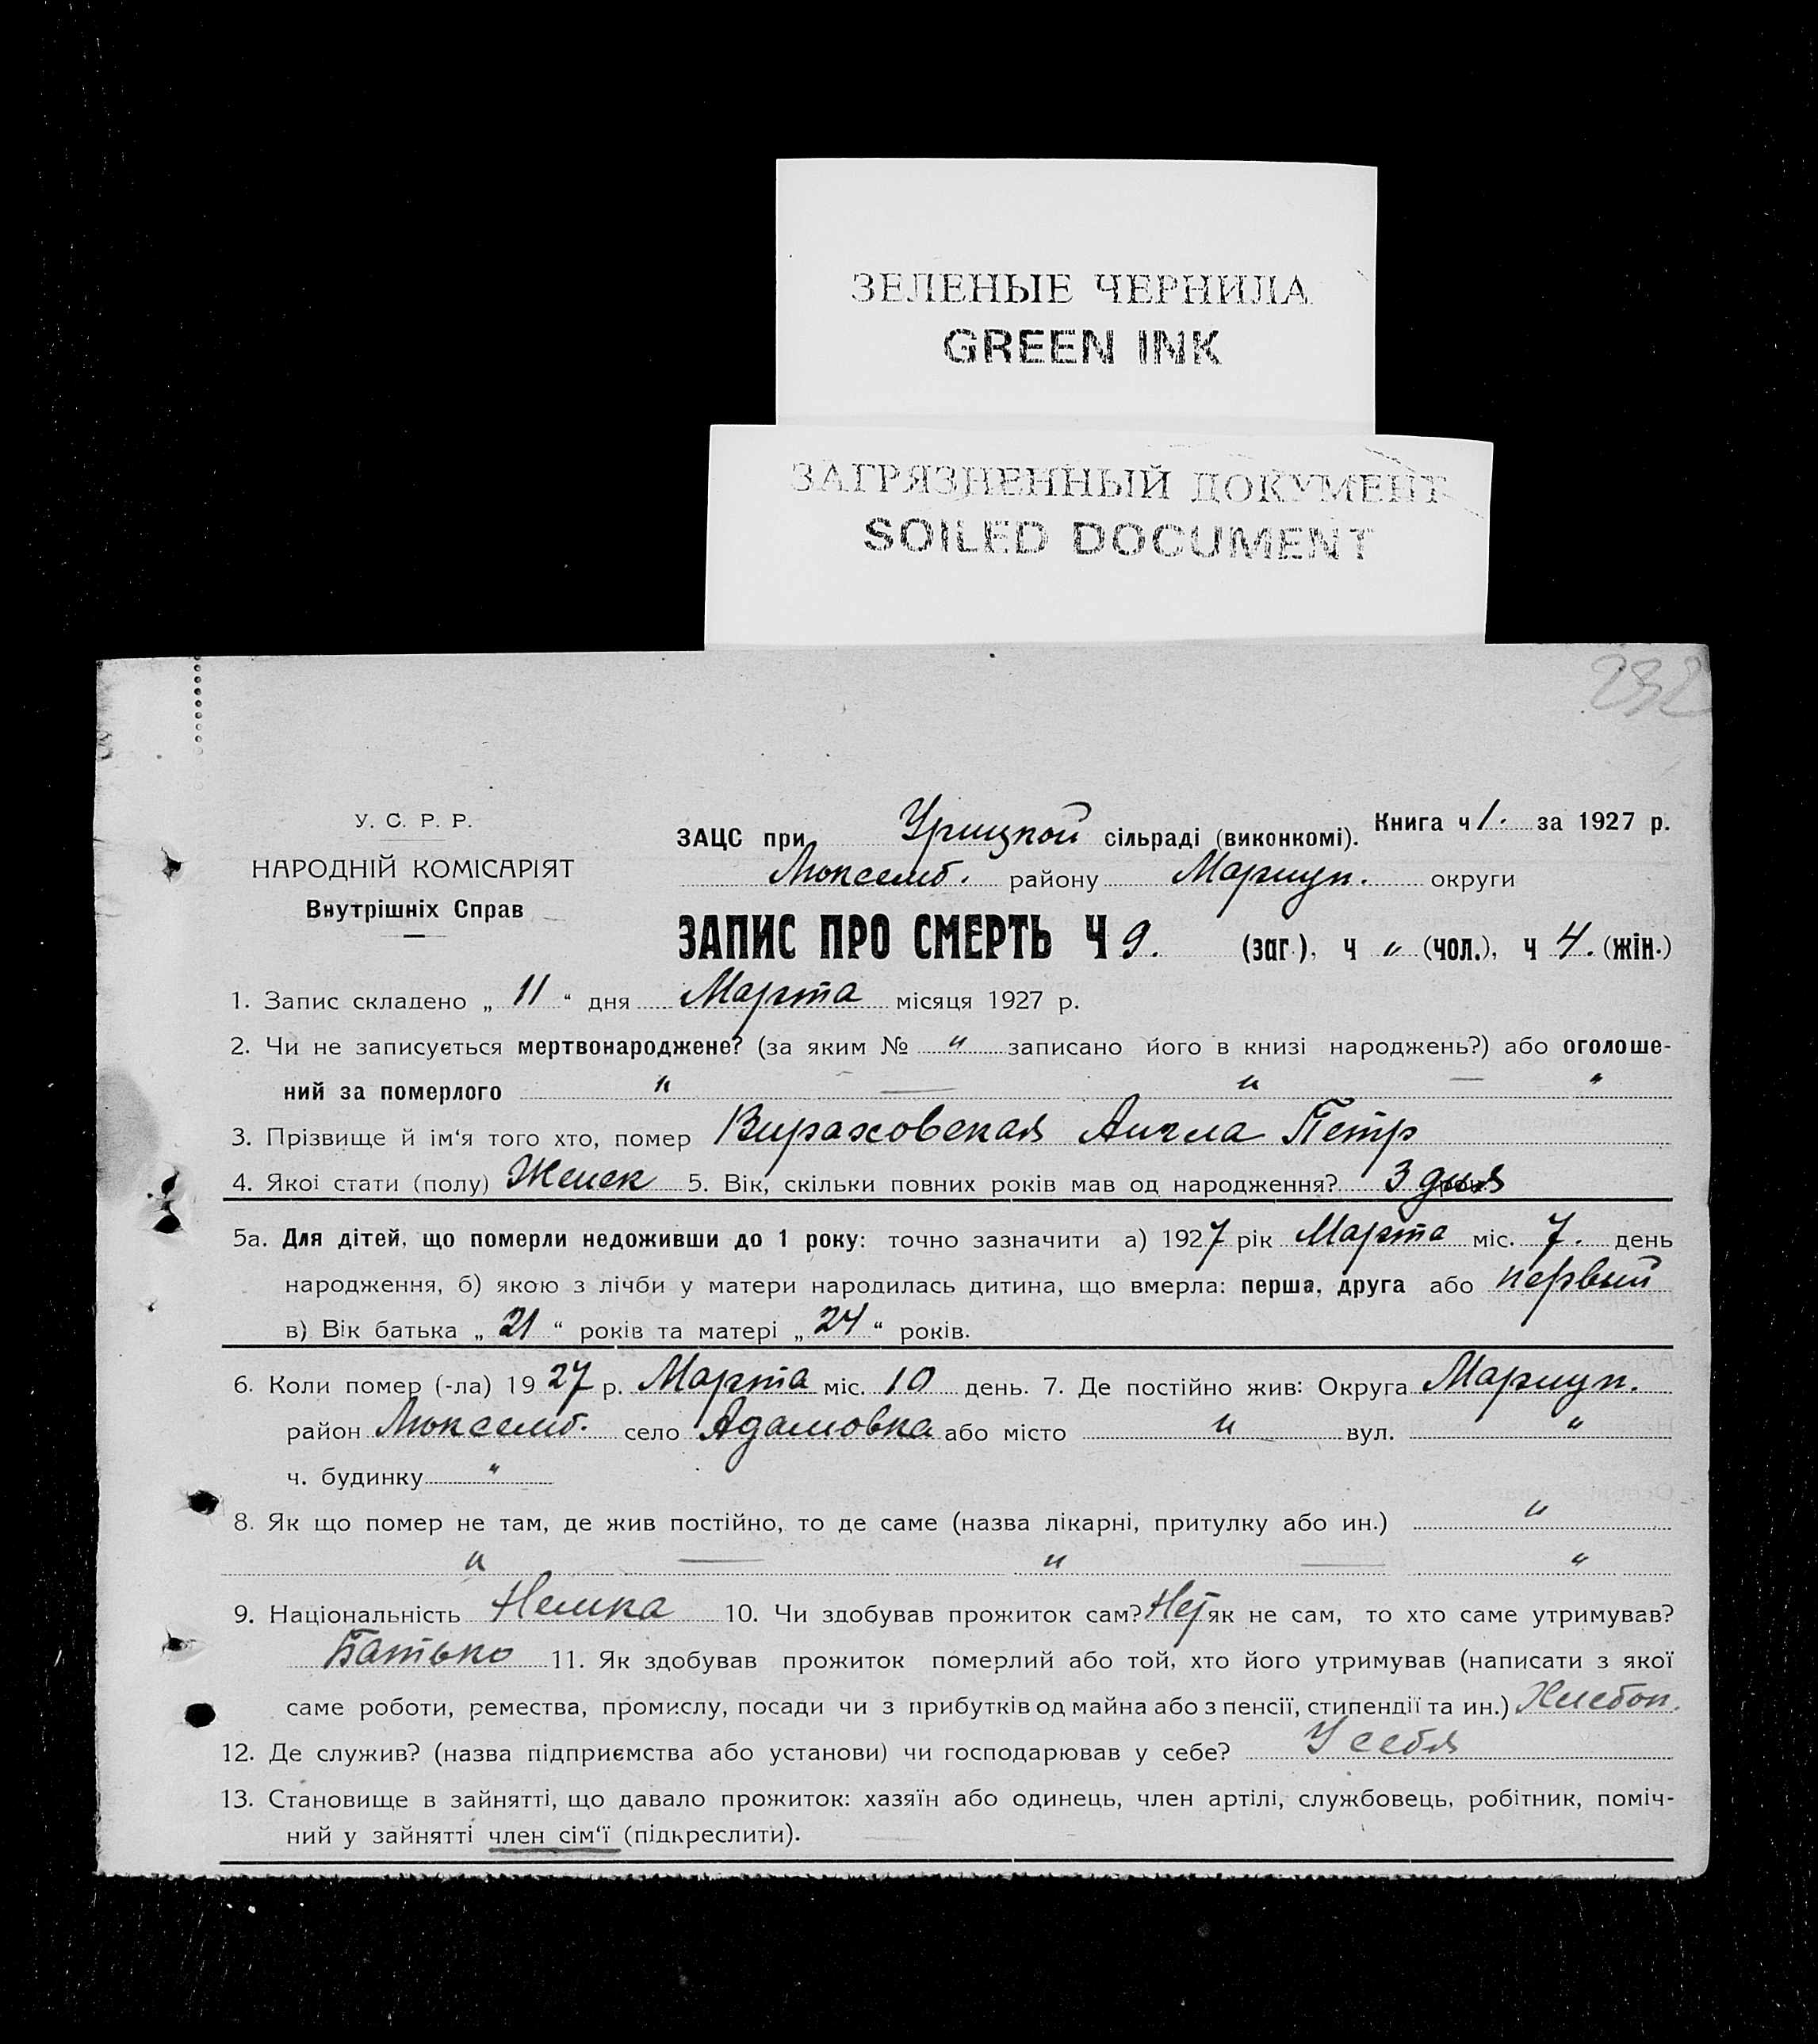 ЗЕЛЕНЫЕ ЧЕРНИЛА
GREEN INK
ЗАГРЯЗНЕННЫЙ ДОКУМЕНТ
SOILED DOCUMENT
232
У. С. Р. Р.
НАРОДНІЙ КОМІСАРІЯТ
Внутрішніх Справ
ЗАЦС при Урицкой сільраді (виконкомі). Книга ч 1. за 1927 р.
Люксемб. району Мариуп. округи
ЗАПИС ПРО СМЕРТЬ Ч 9. (заг.), ч " (чол.), ч 4. (жін.)
1. Запис складено „ 11 “ дня Марта місяця 1927 р.
2. Чи не записується мертвонароджене? (за яким № " записано його в книзі народжень?) або оголоше-
ний за померлого " — " — "
3. Прізвище й ім‘я того хто, помер Петр
4. Якої стати (полу) Женск 5. Вік, скільки повних років мав од народження? 3 дня
5а. Для дітей, що померли недоживши до 1 року: точно зазначити а) 1927 рік Марта міс. 7. день
народження, б) якою з лічби у матери народилась дитина, що вмерла: перша, друга або первый
в) Вік батька „ 21 “ років та матері „ 24 “ років.
6. Коли помер (-ла) 1927 р. Марта міс. 10 день. 7. Де постійно жив: Округа Мариуп.
район Люксемб. село Адамовка або місто " вул. "
ч. будинку "
8. Як що помер не там, де жив постійно, то де саме (назва лікарні, притулку або ин.) "
" — " — "
9. Національність Немка 10. Чи здобував прожиток сам? Нет як не сам, то хто саме утримував?
Батько 11. Як здобував прожиток померлий або той, хто його утримував (написати з якої
саме роботи, ремества, промислу, посади чи з прибутків од майна або з пенсії, стипендії та ин.) Хлебоп.
12. Де служив? (назва підприємства або установи) чи господарював у себе? У себя
13. Становище в зайнятті, що давало прожиток: хазяїн або одинець, член артілі, службовець, робітник, поміч-
ний у зайнятті член сім‘ї (підкреслити).